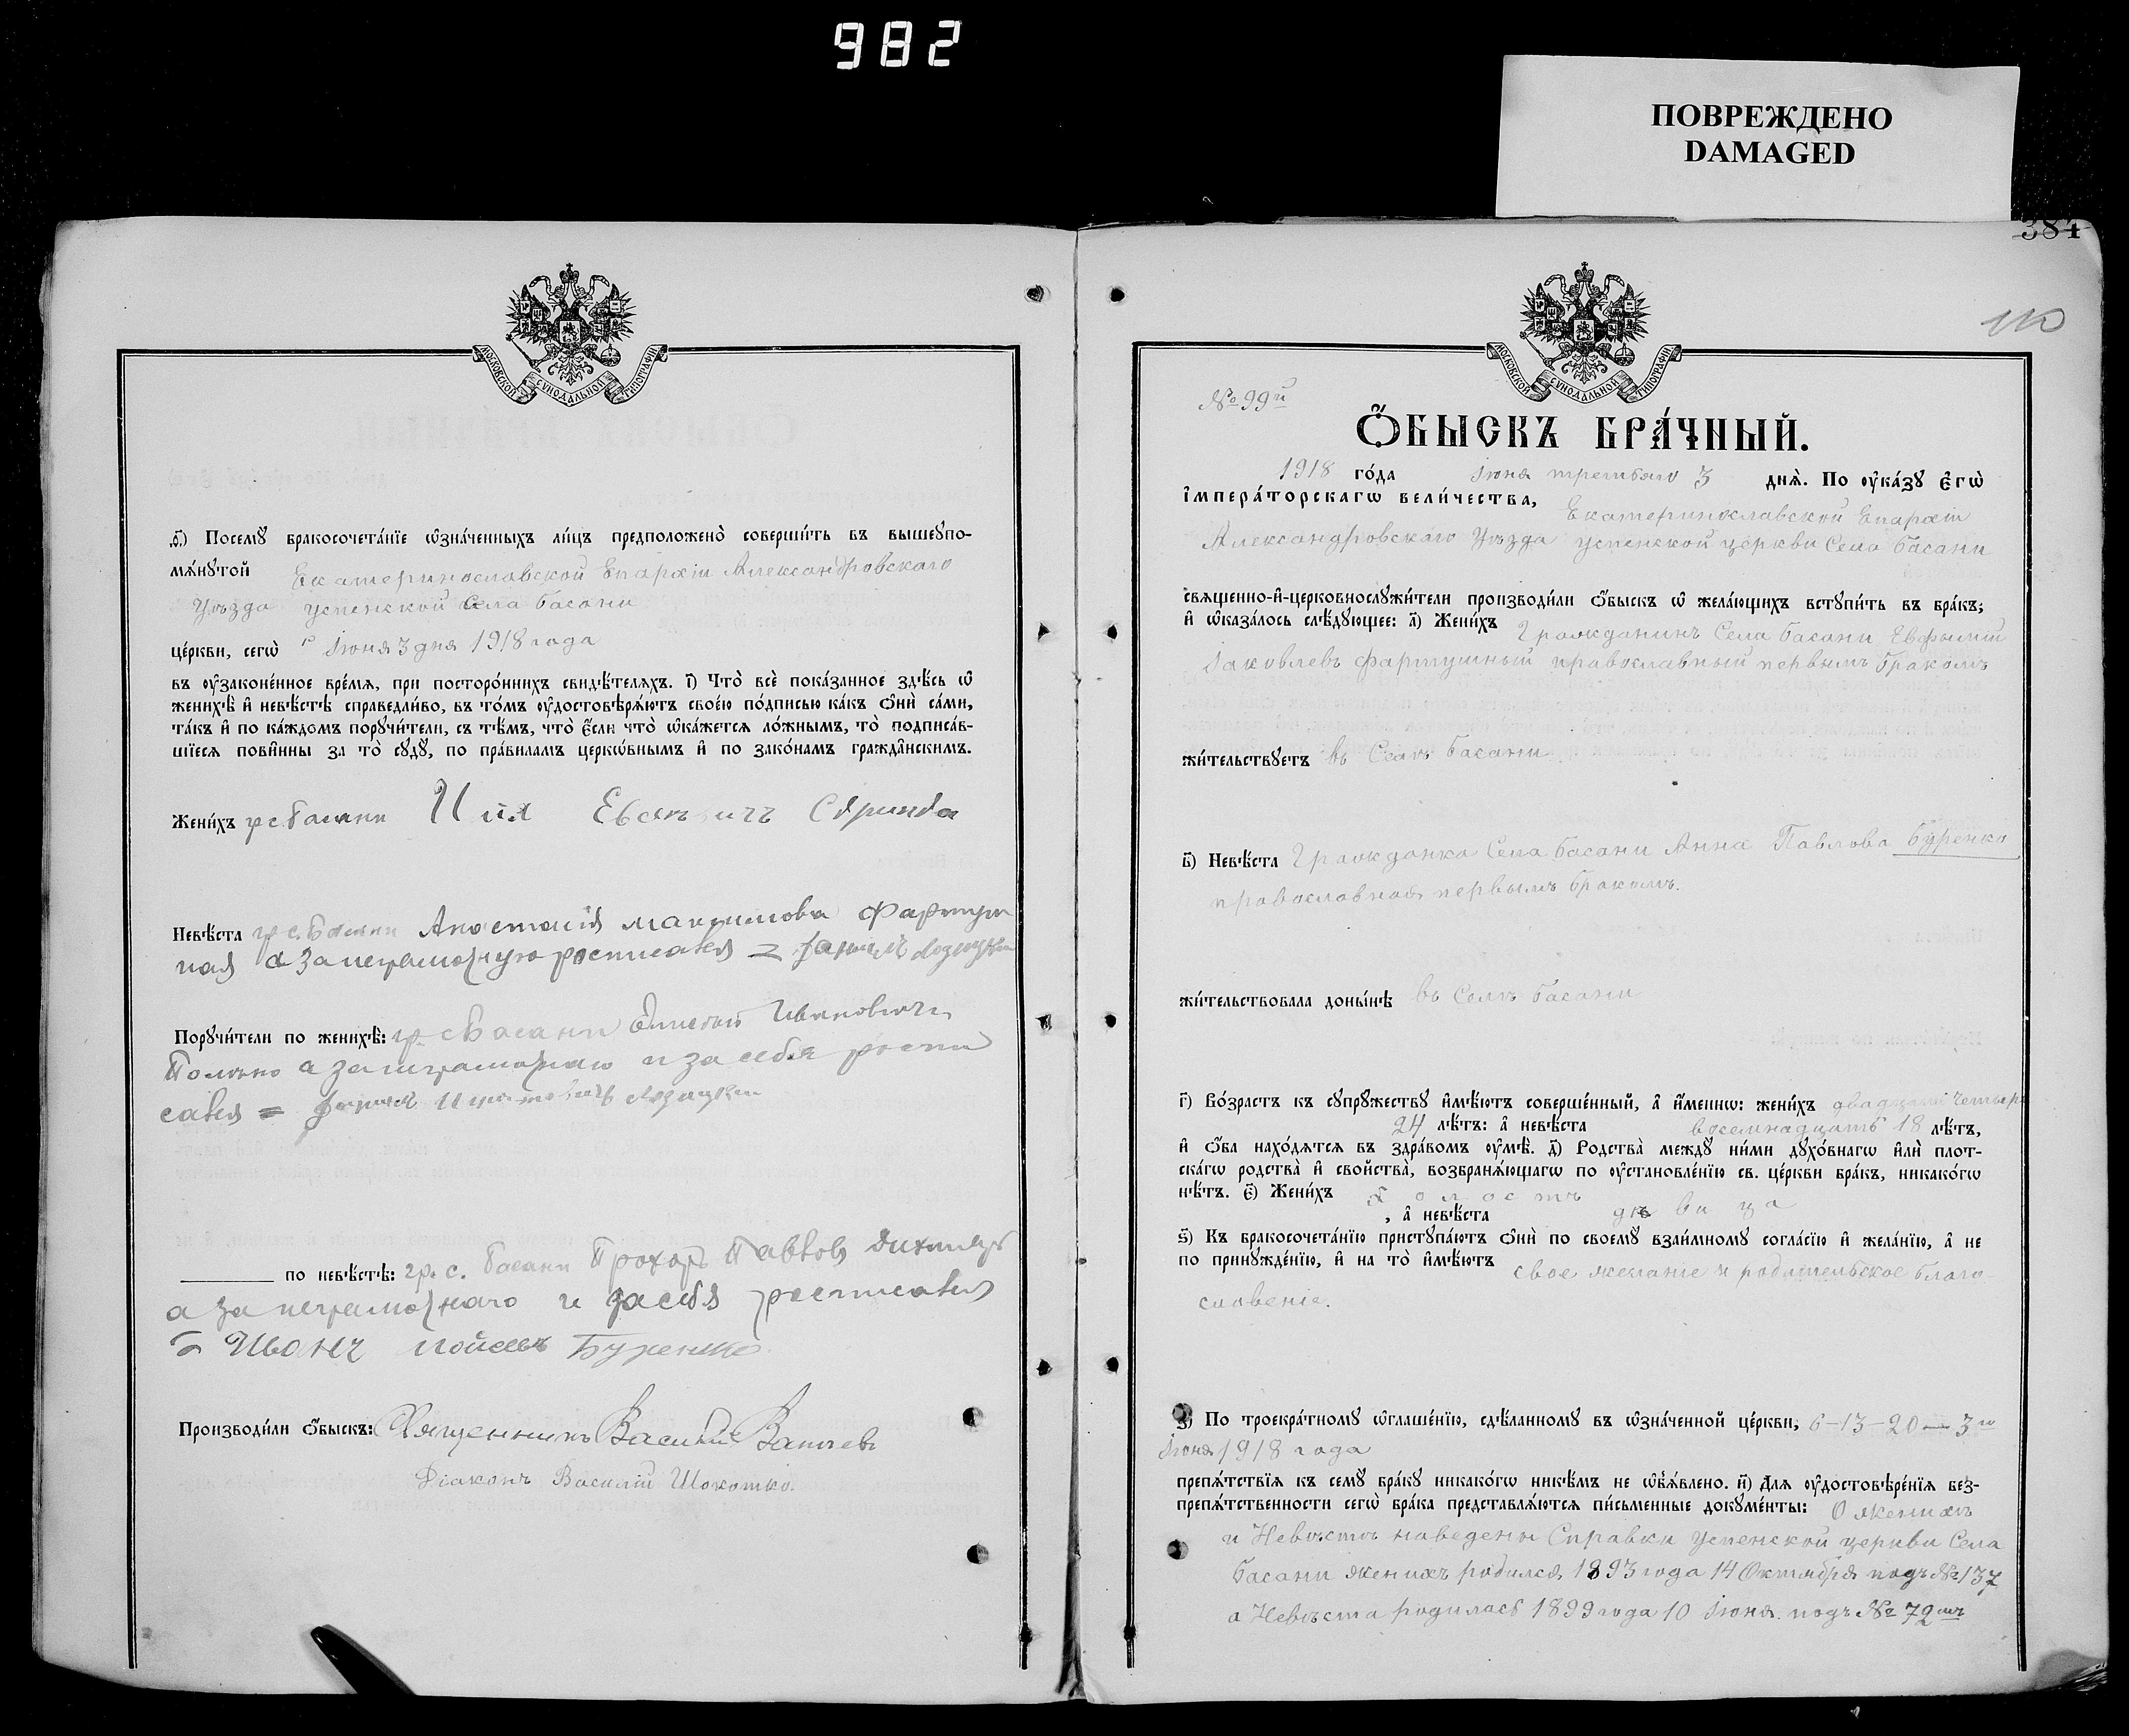 982
ПОВРЕЖДЕНО
DAMAGED
МОСКОВСКОЙ СѴНОДАЛЬНОЙ ТИПОГРАФІИ
ѳ҃) Посемꙋ бракосочета́нїе ѡ҆зна́ченныхъ ли́цъ предположено̀ соверши́ть въ вышеꙋпо-
мѧ́нꙋтой Екатеринославской Епархіи Александровскаго
Уѣзда Успенской Села Басани
це́ркви, сегѡ̀ Іюня 3 дня 1918 года
въ ᲂу҆законе́нное вре́мѧ, при посторо́ннихъ свидѣ́телѧхъ. і҃) Что̀ всѐ пока́занное здѣ́сь ѡ҆
женихѣ̀ и҆ невѣ́стѣ справедли́во, въ то́мъ ᲂу҆достовѣрѧ́ютъ свое́ю по́дписью ка́къ ѻ҆нѝ са́ми,
та́къ и҆ по ка́ждомъ порꙋчи́тели, съ тѣ́мъ, что̀ є҆́сли что̀ ѡ҆ка́жетсѧ ло́жнымъ, то̀ подписа́в-
шїесѧ пови́нны за то̀ сꙋдꙋ̀, по пра́виламъ церкѡ́внымъ и҆ по зако́намъ гражда̑нскимъ.
Жени́хъ гр с. Басани
Невѣ́ста гр с. Басани Анастасія Максимова Фартуш
ная а за неграмотную росписался =
Порꙋчи́тели по женихѣ̀: гр. с Басани Елисей Иванович
а за неграмотнаго и за себя роспи
сался =
по невѣ́стѣ: гр. с. Басани Прохоръ Павлов
а за неграмотнаго и за себя росписался
= Иванъ Буренко
Производи́ли ѻ҆́быскъ: Священникъ Василій
Діаконъ Василій Шокотко.
384
110
МОСКОВСКОЙ СѴНОДАЛЬНОЙ ТИПОГРАФІИ
№ 99й
Ѻ҆́БЫСКЪ БРА́ЧНЫЙ.
1918 го́да Іюня третьяго 3 днѧ̀. По ᲂу҆ка́зꙋ є҆гѡ̀
і҆мпера́торскагѡ вели́чества, Екатеринославской Епархіи
Александровскаго Уѣзда Успенской церкви Села Басани
свѧщенно-и҆-церковнослꙋжи́тели производи́ли ѻ҆́быскъ ѡ҆ жела́ющихъ встꙋпи́ть въ бра́къ;
и҆ ѡ҆каза́лось слѣ́дꙋющее: а҃) Жени́хъ Гражданинъ Села Басани Евфимій
Іаковлевъ Фартушный православный первымъ бракомъ
жи́тельствꙋетъ въ Селѣ Басани
в҃) Невѣ́ста Гражданка Села Басани Анна Павлова Буренко
православная первымъ бракомъ.
жи́тельствовала доны́нѣ въ Селѣ Басани
г҃) Во́зрастъ къ сꙋпрꙋжествꙋ и҆мѣ́ютъ соверше́нный, а҆ и҆́меннѡ: жени́хъ двадцати четыре
24 лѣ́тъ: а҆ невѣ́ста восемнадцать 18 лѣ́тъ,
и҆ ѻ҆́ба нахо́дѧтсѧ въ здра́вомъ ᲂу҆мѣ̀. д҃) Родства̀ междꙋ̀ ни́ми дꙋхо́внагѡ и҆лѝ плот-
ска́гѡ родства̀ и҆ свойства̀, возбранѧ́ющагѡ по ᲂу҆становле́нїю св. це́ркви бра́къ, никако́гѡ
нѣ́тъ. є҃) Жени́хъ холостъ
, а҆ невѣ́ста дѣвица
ѕ҃) Къ бракосочета́нїю пристꙋпа́ютъ ѻ҆нѝ по своемꙋ̀ взаи́мномꙋ согла́сїю и҆ жела́нїю, а҆ не
по принꙋжде́нїю, и҆ на то̀ и҆мѣ́ютъ свое желаніе и родительское благо-
словеніе.
з҃) По троекра́тномꙋ ѡ҆глаше́нїю, сдѣ́ланномꙋ въ ѡ҆зна́ченной це́ркви, 6-13-20 — 3го
Іюня 1918 года
препѧ́тствїѧ къ семꙋ̀ бра́кꙋ никако́гѡ никѣ́мъ не ѡ҆б̾ѧ́влено. и҃) Длѧ ᲂу҆достовѣре́нїѧ без-
препѧ́тственности сегѡ̀ бра́ка представлѧ́ютсѧ пи́сьменные докꙋме́нты: О женихѣ
и Невѣстѣ наведены Справки Успенской церкви Села
Басани женихъ родился 1893 года 14 Октября подъ № 137
а Невѣста родилась 1899 года 10 Іюня подъ № 72мъ